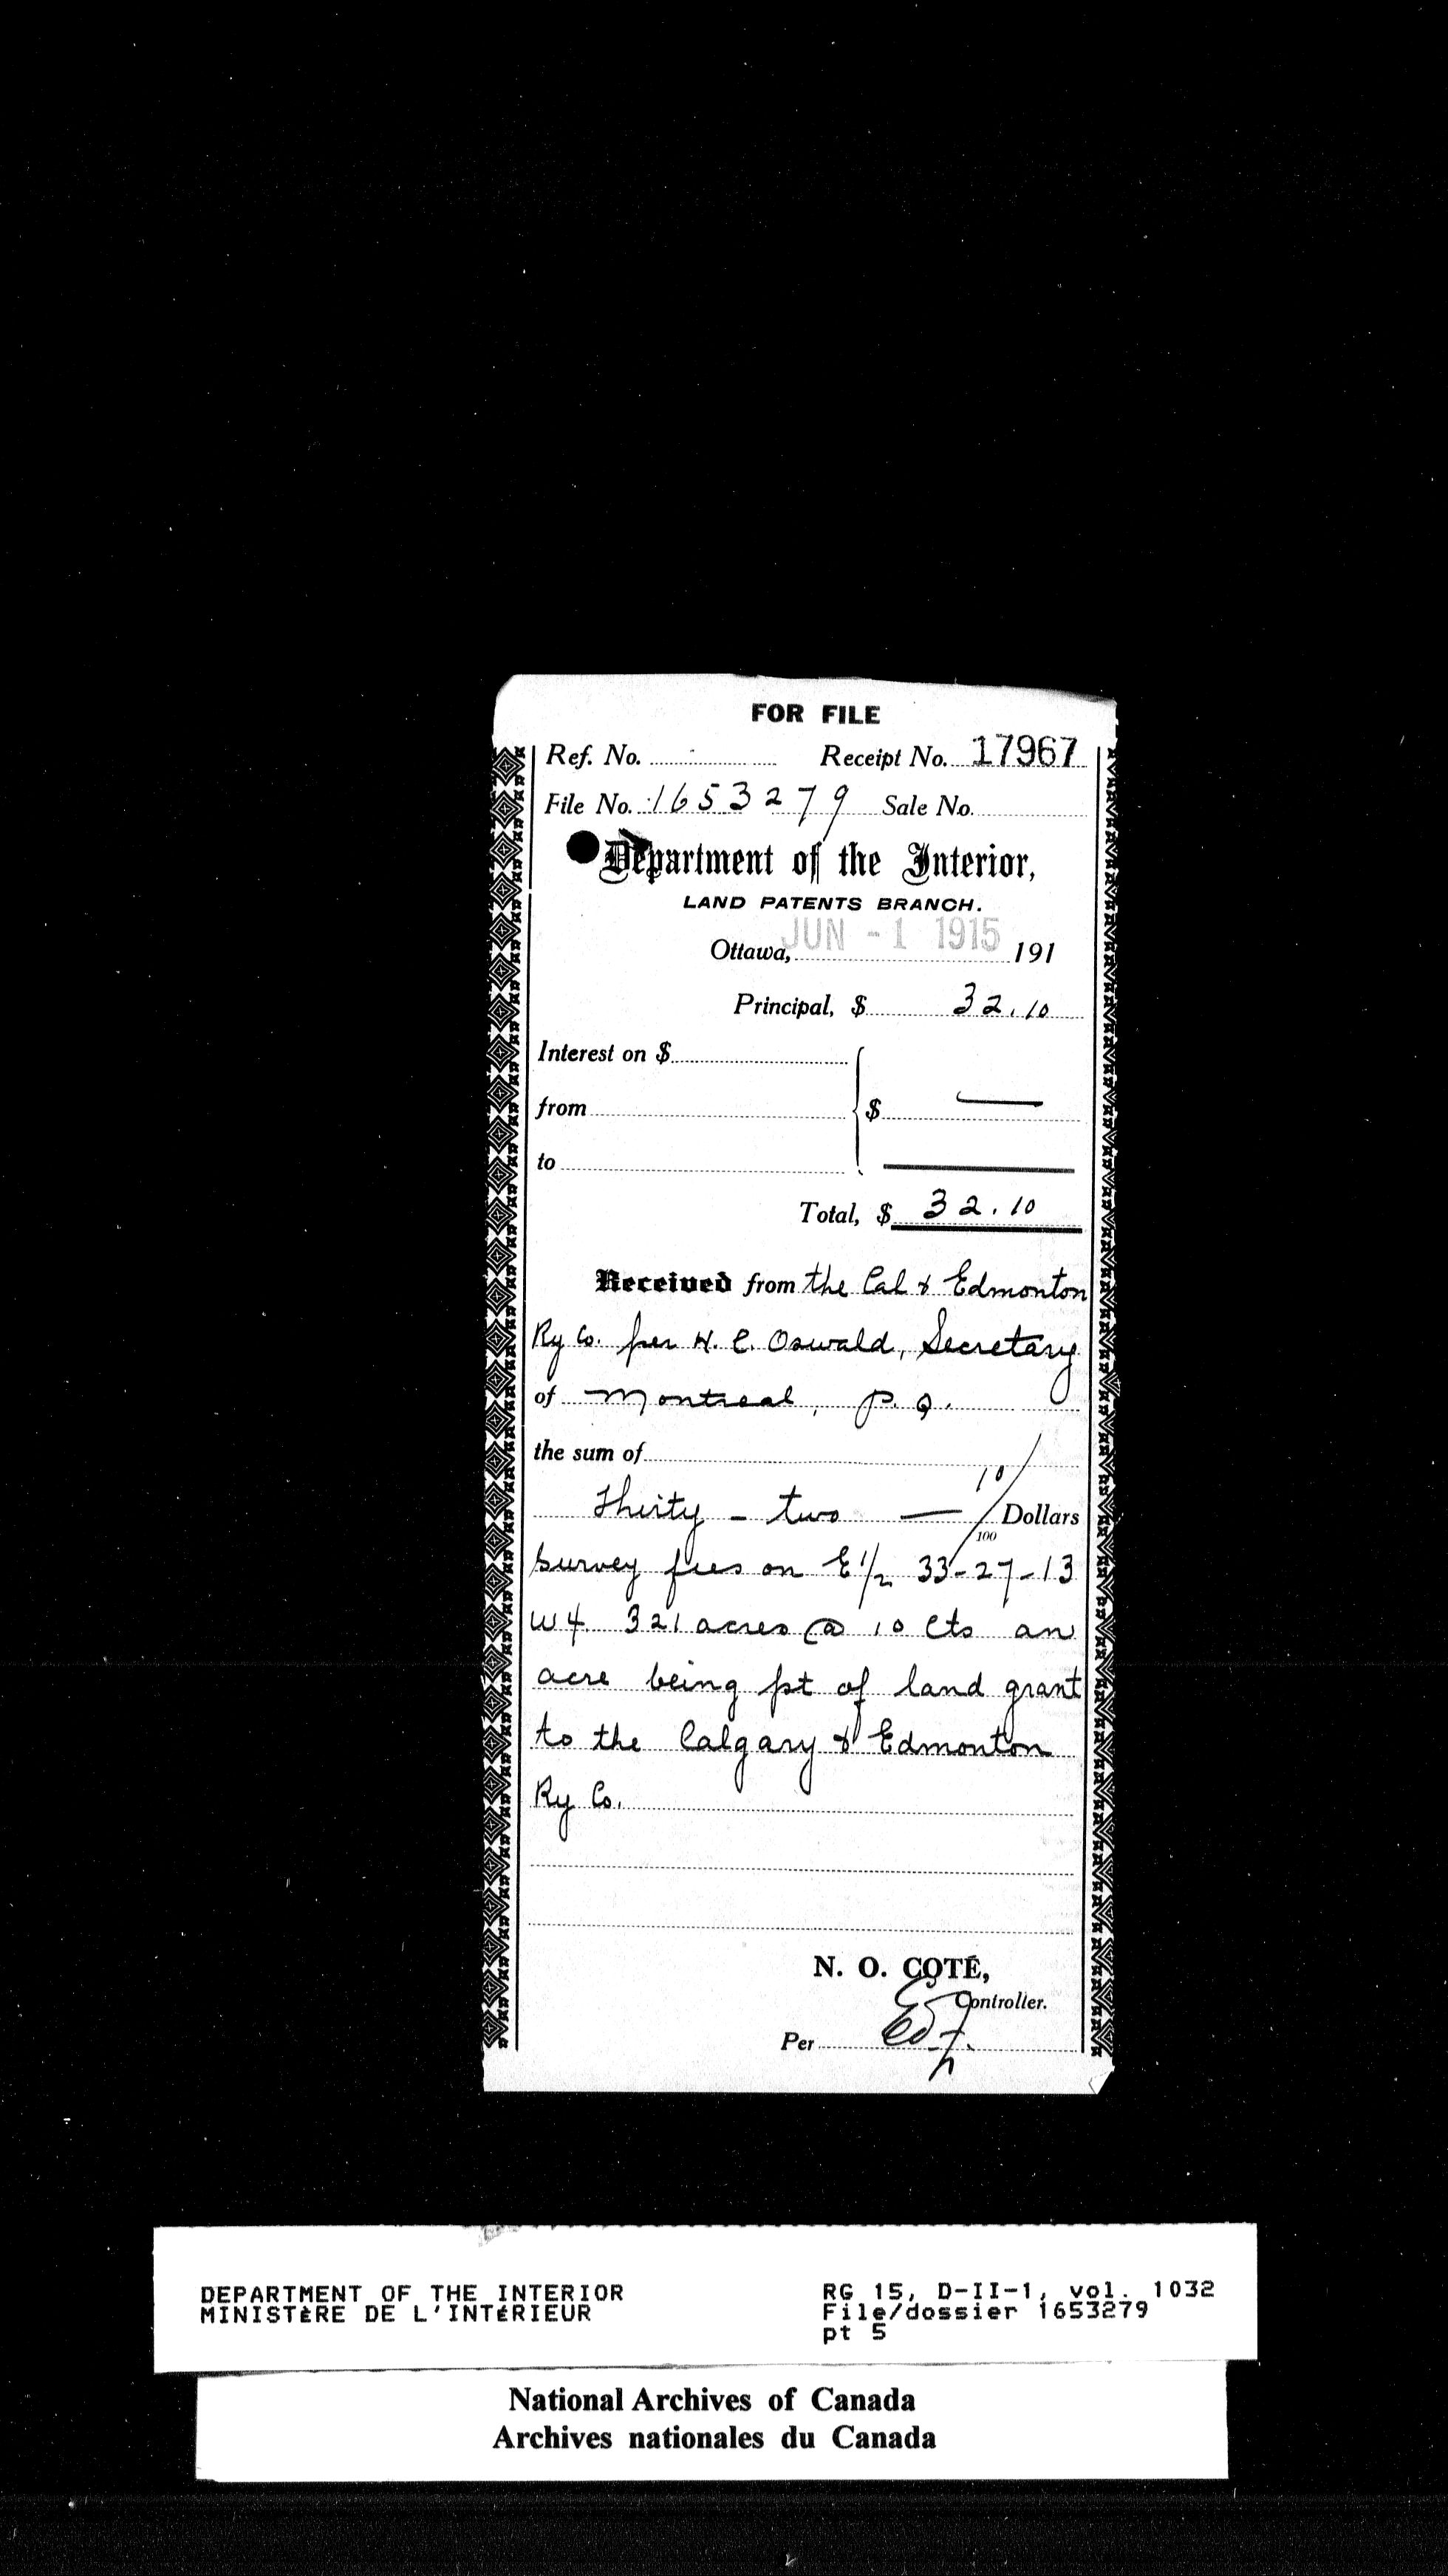 FOR FILE
Ref. No. Receipt No. 17967
File No. 1653279 Sale No.
Department of the Interior,
LAND PATENTS BRANCH.
Ottawa, JUN - 1 1915 191
Principal, $ 32.10
Interest on $
from $ —
to
Total, $ 32.10
Received from the Cal & Edmonton
Ry Co. per H. C. Oswald, Secretary
of Montreal, P. Q.
the sum of
Thirty - two — 10/100 Dollars
Survey fees on E 1/2 33-27-13
W4 321 acres @ 10 Cts an
acre being pt of land grant
to the Calgary & Edmonton
Ry Co.
N. O. COTÉ,
Controller.
Per
DEPARTMENT OF THE INTERIOR
MINISTÈRE DE L'INTÉRIEUR
RG 15, D-II-1, vol. 1032
File/dossier 1653279
pt 5
National Archives of Canada
Archives nationales du Canada